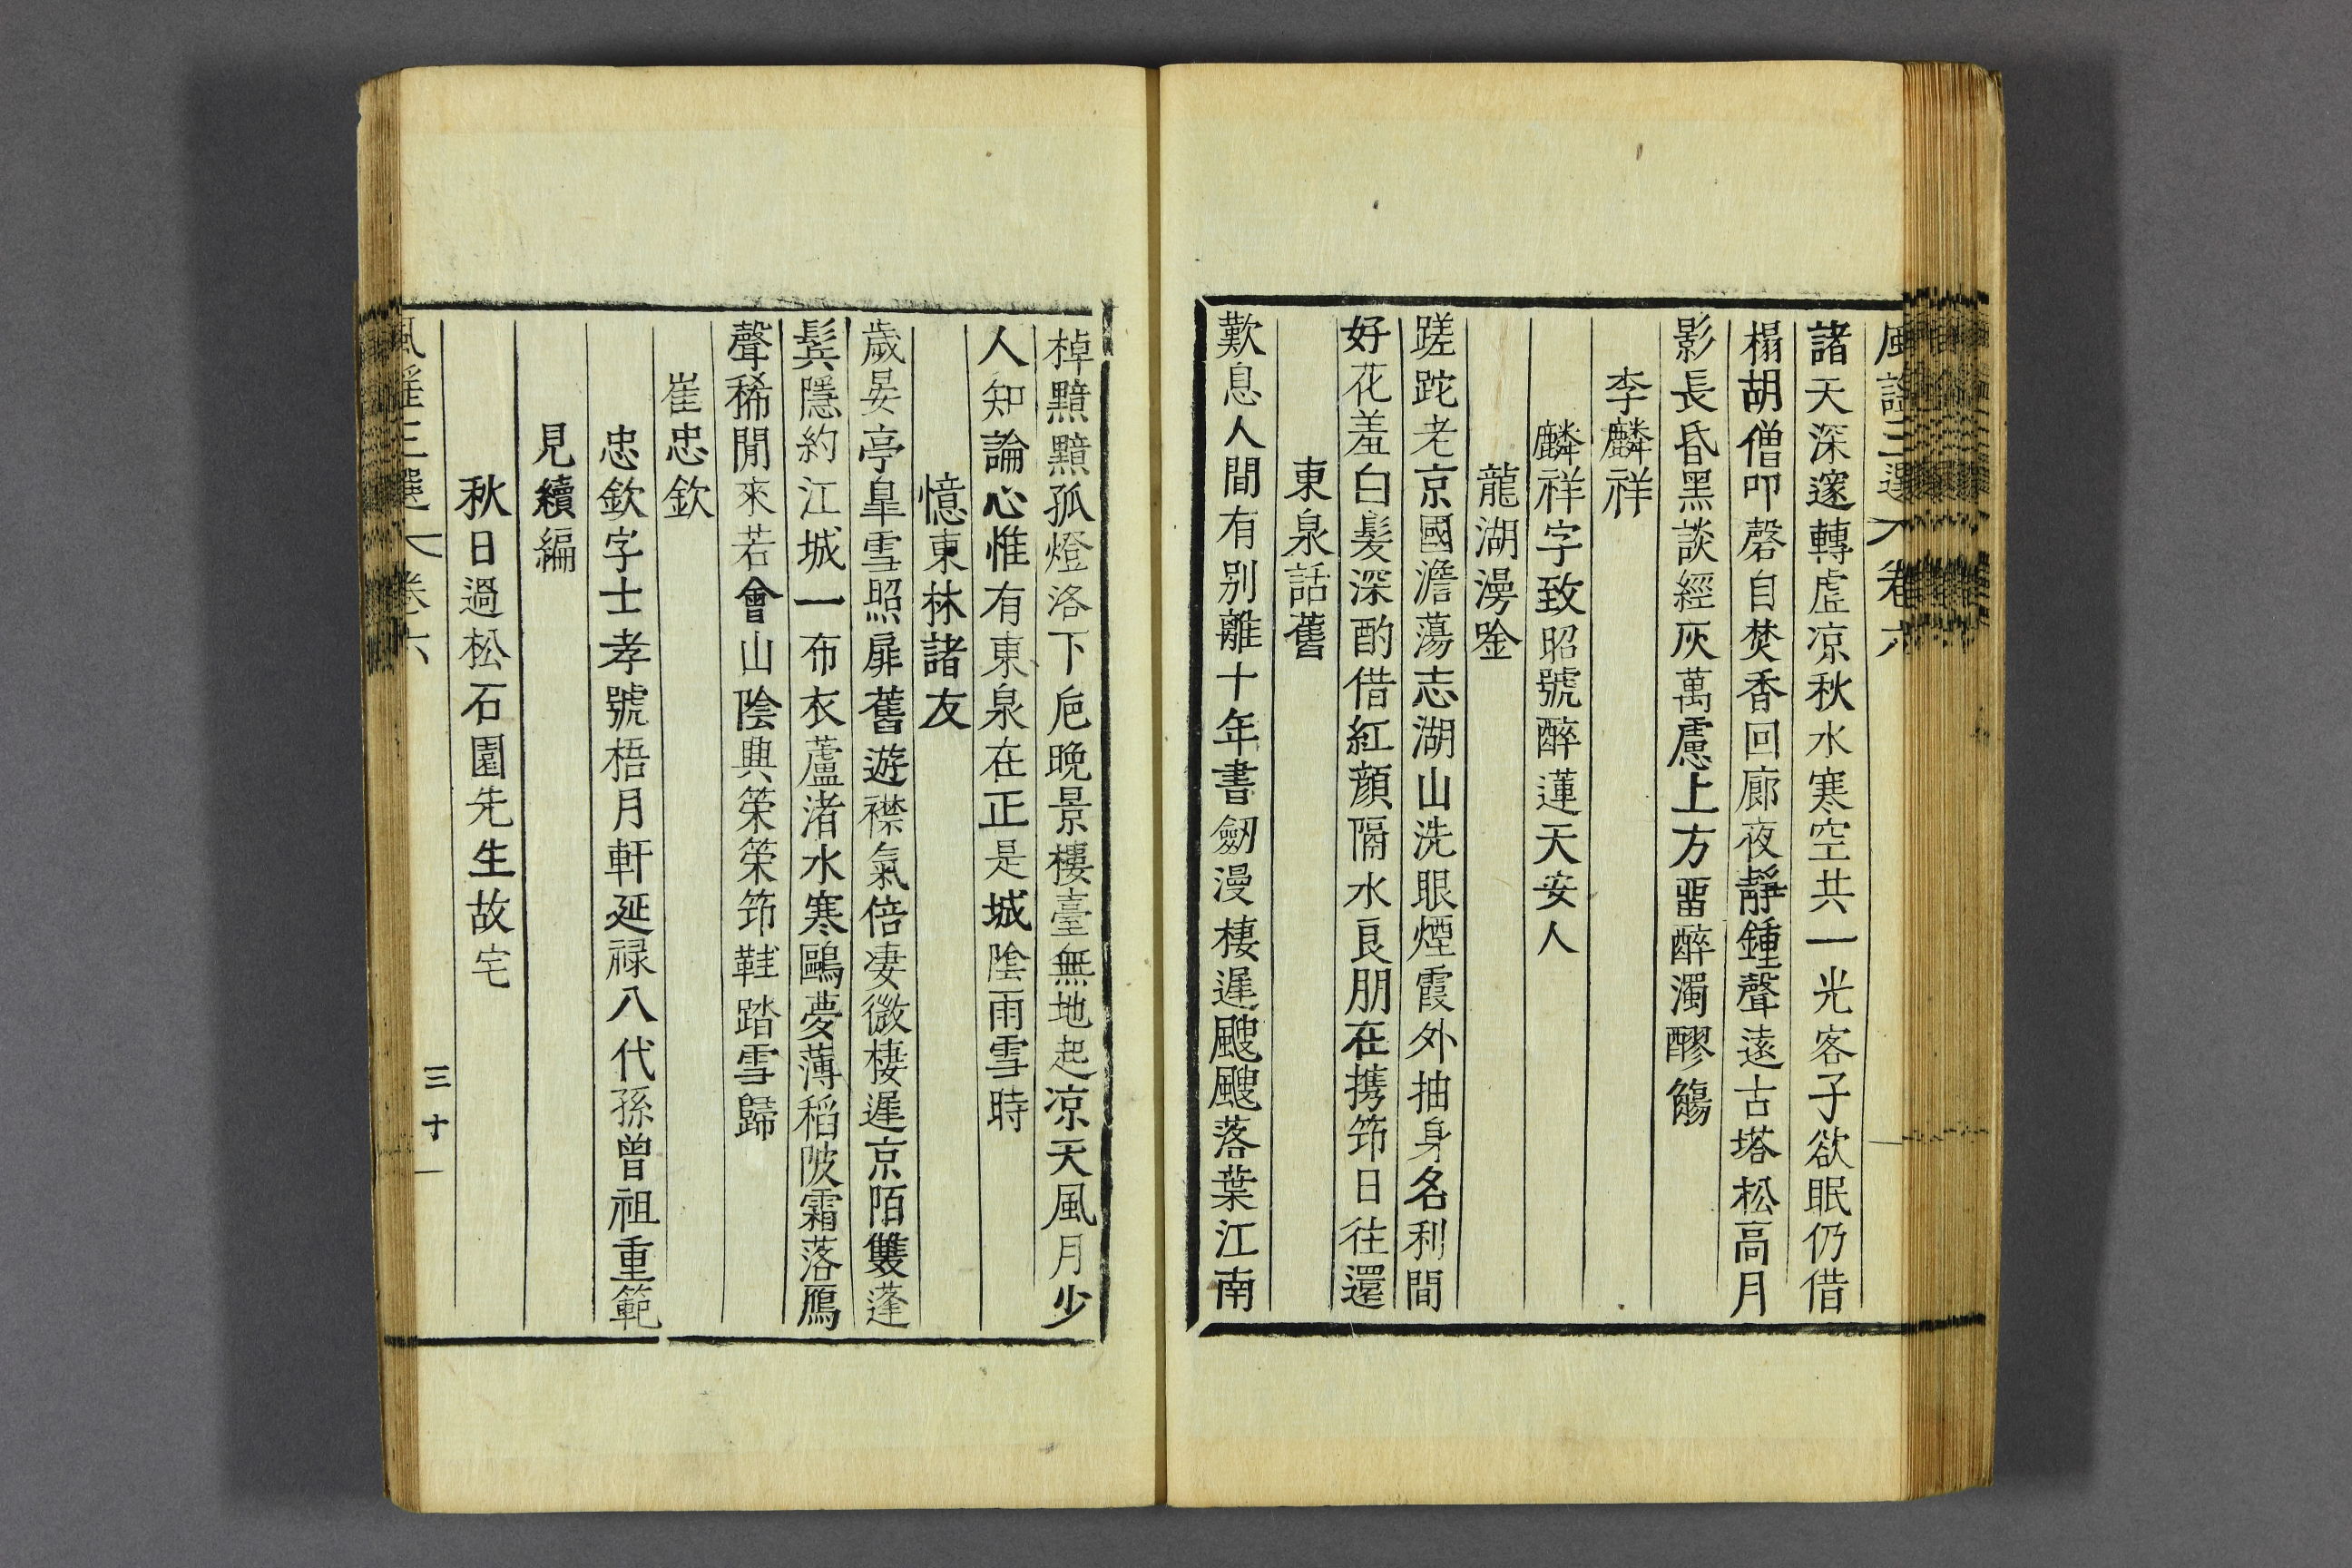 風謠三選 卷六
諸天深邃轉虛凉秋水寒空共一光客子欲眠仍借
榻胡僧叩磬自焚香回廊夜靜鍾聲遠古塔松高月
影長昏黑談經灰萬慮上方畱醉濁醪觴
李麟祥
麟祥字致昭號醉蓮天安人
龍湖澷唫
蹉跎老京國澹蕩志湖山洗眼煙霞外抽身名利間
好花羞白髮深酌借紅顏隔水良朋在携筇日往還
東泉話舊
歎息人間有別離十年書劒漫棲遲颼颼落葉江南
棹黯黯孤燈洛下巵晚景樓臺無地起凉天風月少
人知論心惟有東泉在正是城陰雨雪時
憶東林諸友
歲晏亭臯雪照扉舊遊襟氣倍凄微棲遲京陌雙蓬
鬂隱約江城一布衣蘆渚水寒鷗夢薄稻陂霜落鴈
聲稀閒來若會山陰興䇹䇹筇鞋踏雪歸
崔忠欽
忠欽字士孝號梧月軒延祿八代孫曾祖重範
見續編
秋日過松石園先生故宅
風謠三選 卷六 三十一